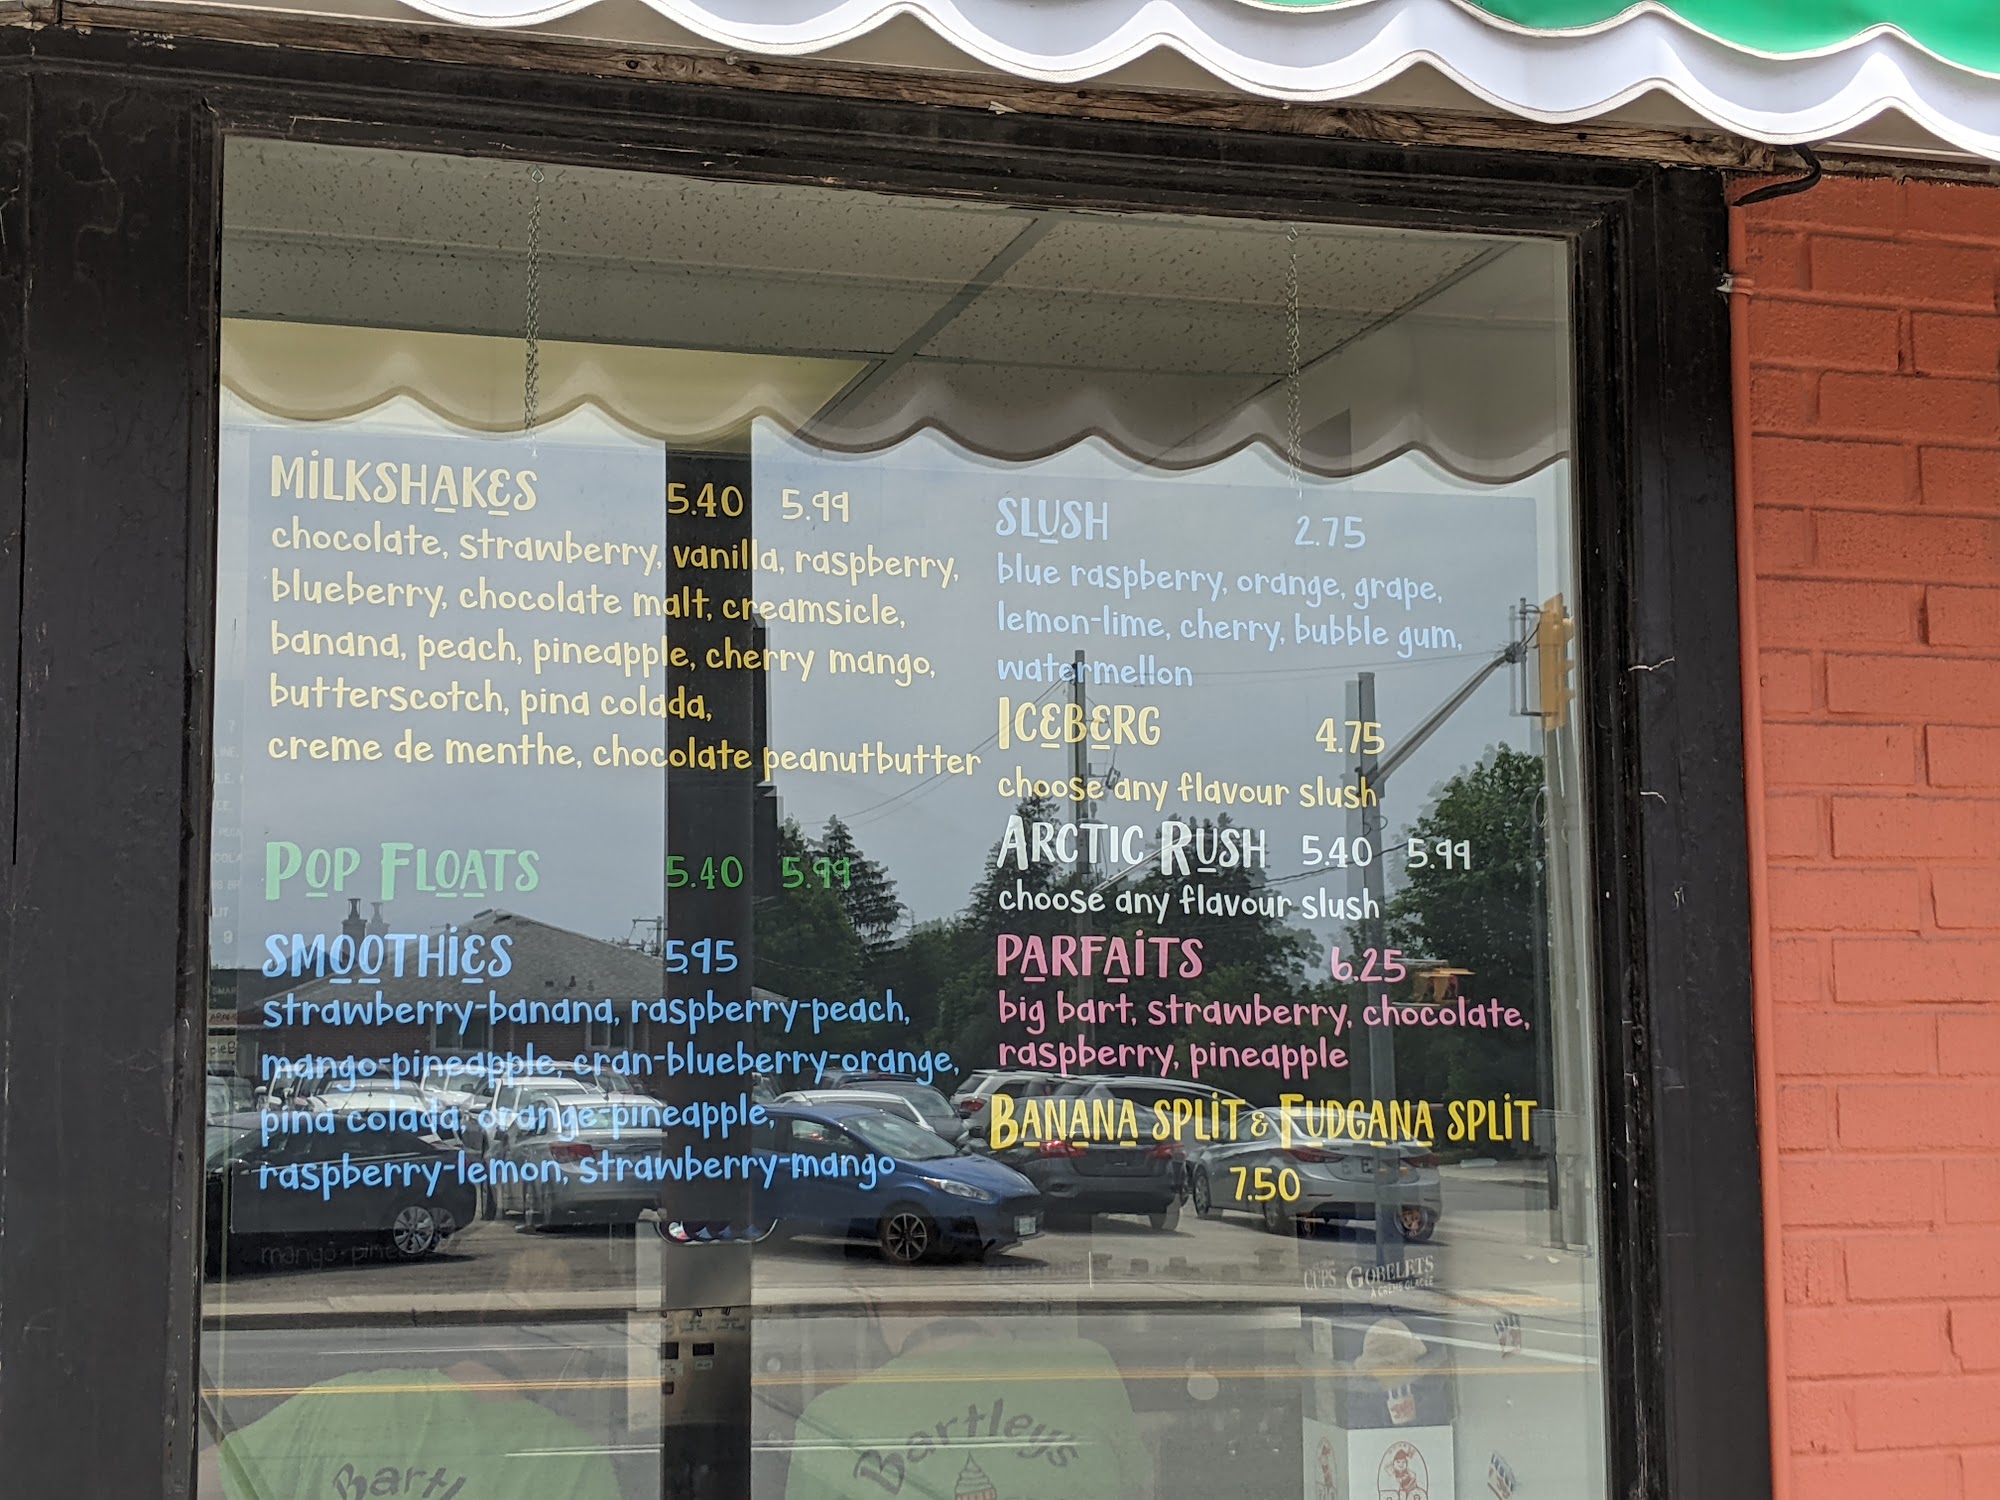 MiLKSHAKES 5.40 5.99
chocolate, strawberry, vanilla, raspberry,
blueberry, chocolate malt, creamsicle,
banana, peach, pineapple, cherry mango,
butterscotch, pina colada,
creme de menthe, chocolate peanutbutter
POP FLOATS 5.40 5.99
SMOOTHiES 5.95
strawberry-banana, raspberry-peach,
mango-pineapple, cran-blueberry-orange,
pina colada, orange-pineapple,
raspberry-lemon, strawberry-mango
SLUSH 2.75
blue raspberry, orange, grape,
lemon-lime, cherry, bubble gum,
watermellon
ICEBERG 4.75
choose any flavour slush
ARCTIC RUSH 5.40 5.99
choose any flavour slush
PARFAiTS 6.25
big bart, strawberry, chocolate,
raspberry, pineapple
BANANA SPLiT & FUDGANA SPLiT
7.50
mango-pine
CUPS GOBELETS
À CRÈME GLACÉE
Bartley's
Bartl